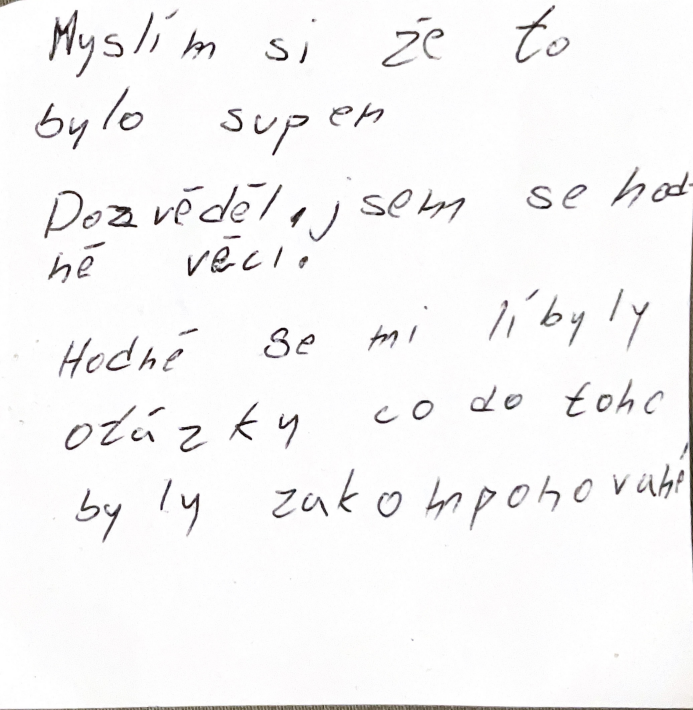 Myslím si že to
bylo super
Dozvěděl, jsem se hod-
ně věcí.
Hodně se mi líbyly
otázky co do toho
byly zakomponované